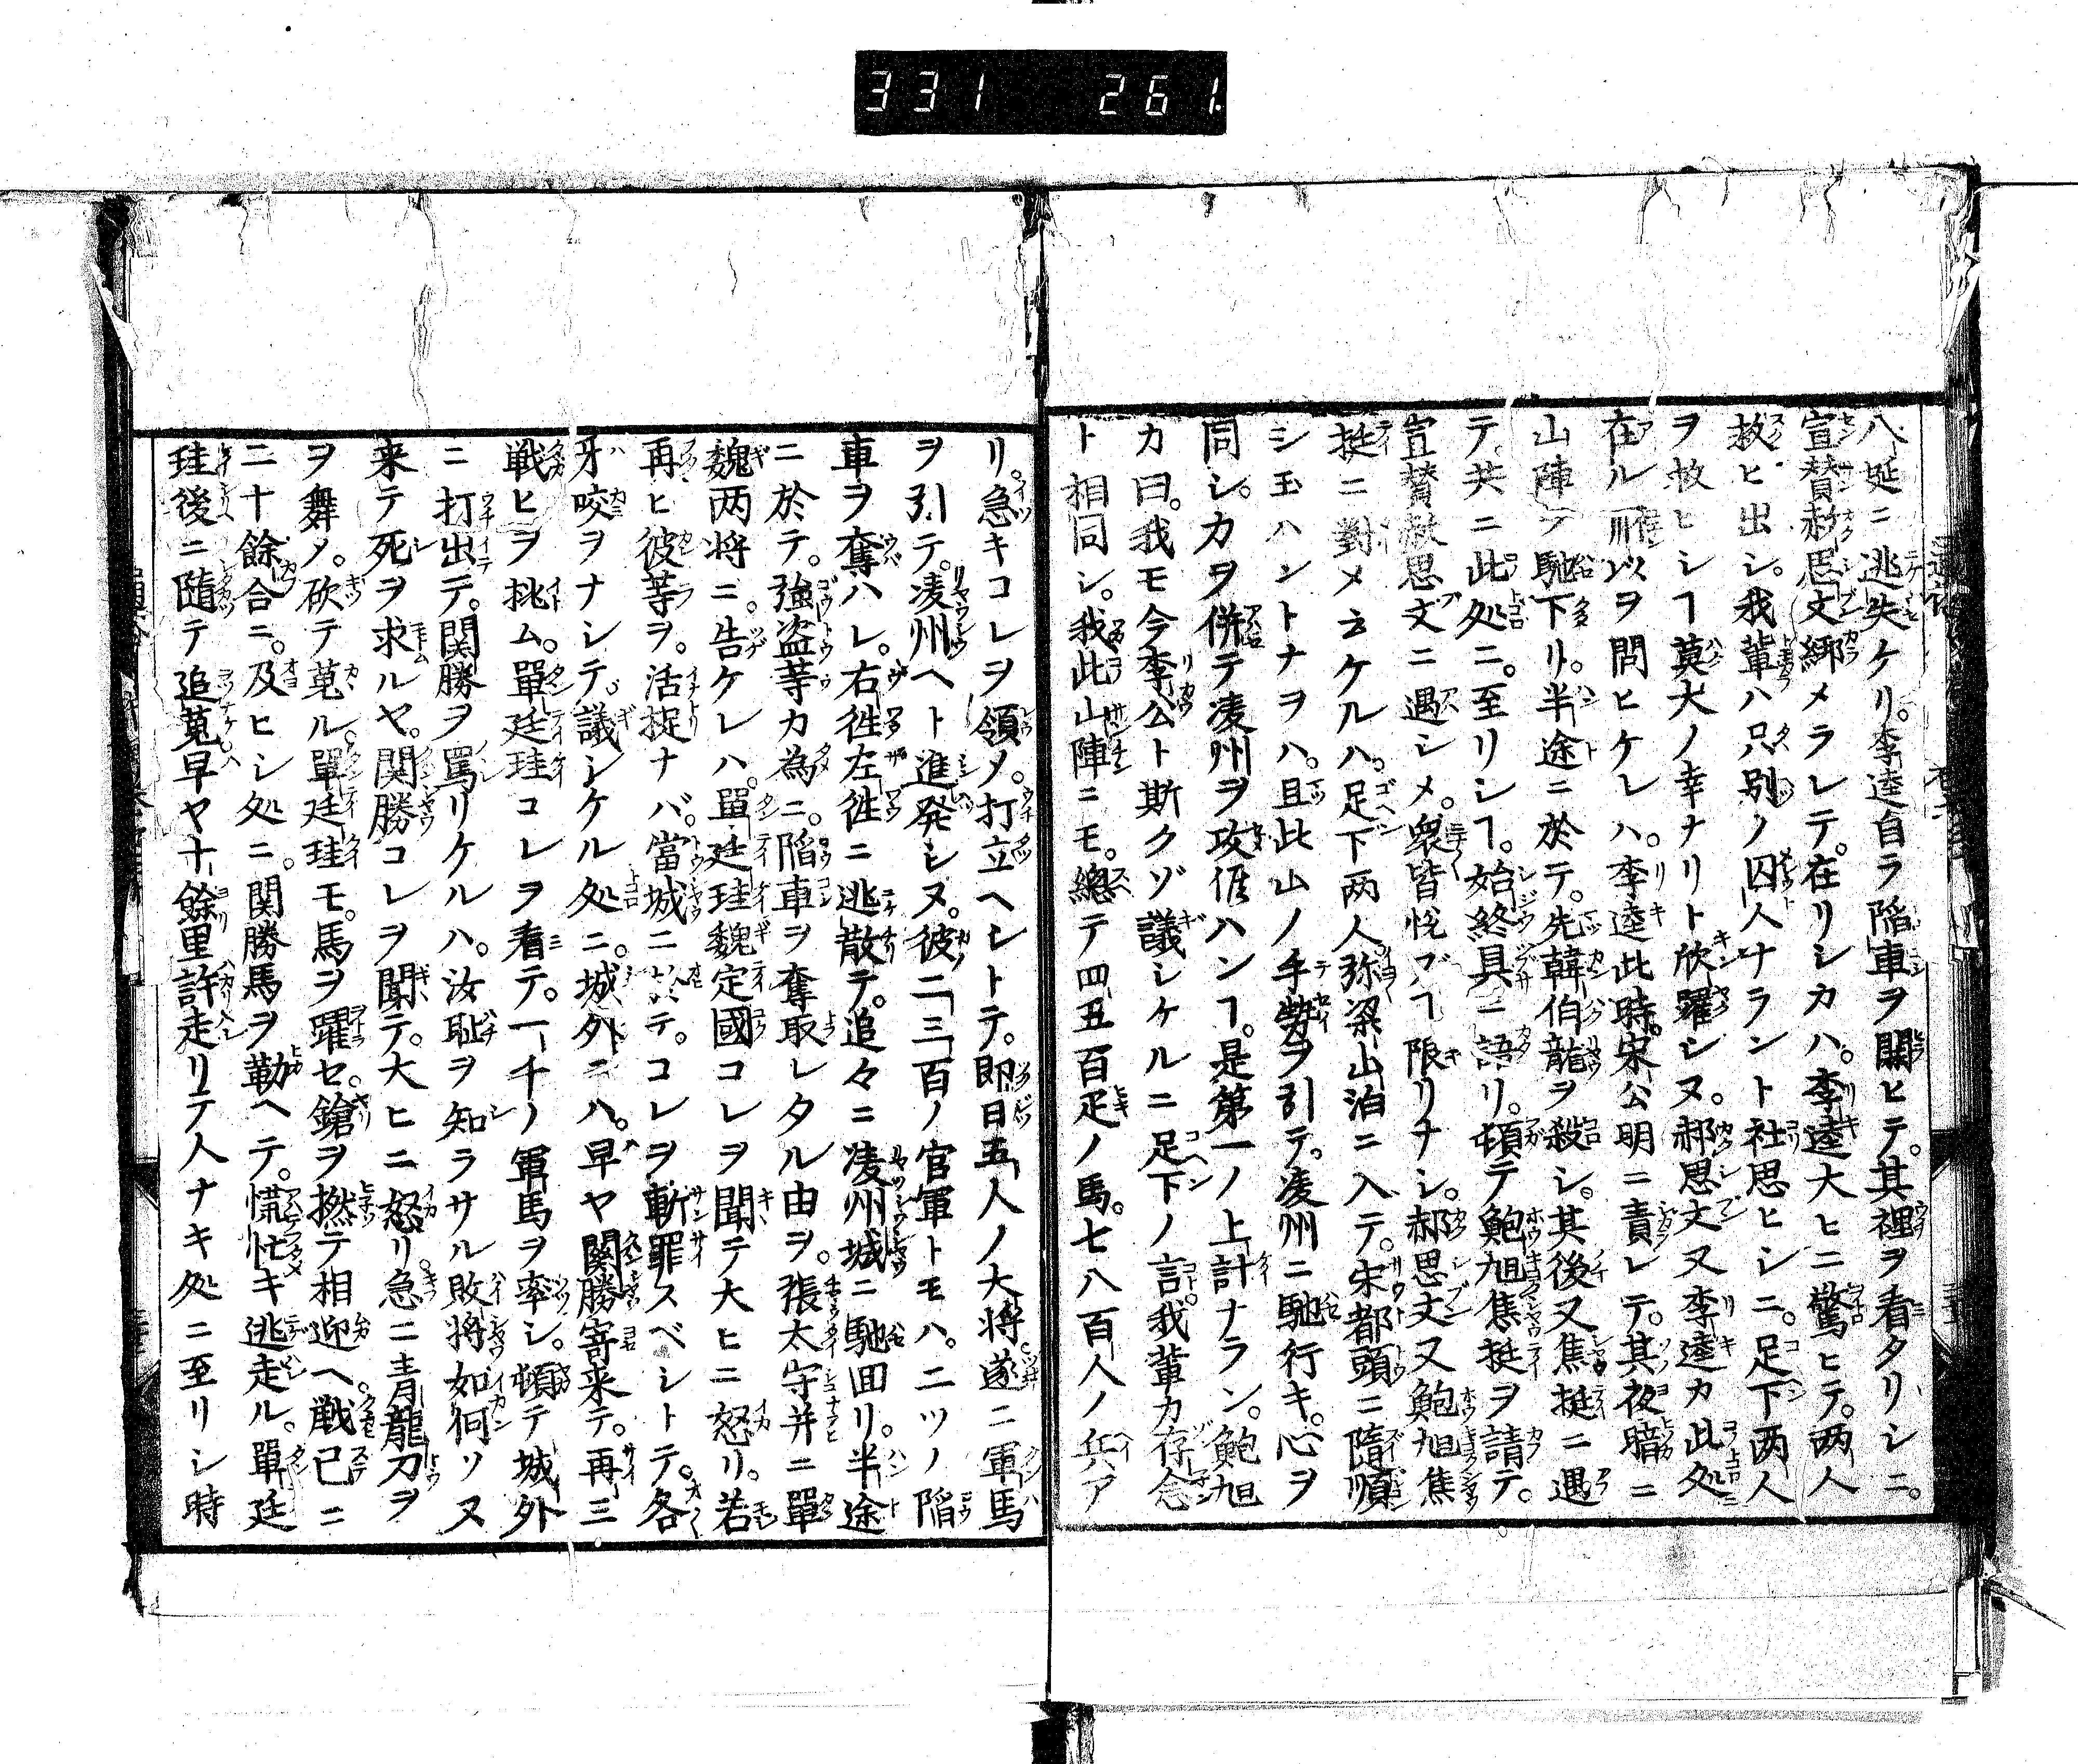 331 261
八延ニ逃失ケリ。李逵自ラ陥車ヲ開ヒテ。其裡ヲ看タリシニ。
宣賛赦思文綁メラレテ。在リシカハ。李逵大ヒニ驚ヒテ。两人
救ヒ出シ。我輩ハ只別ノ囚人ナラント社思ヒシニ。足下两人
ヲ救ヒシヿ莫大ノ幸ナリト欣躍シヌ。郝思文又李逵カ此処
在ル所以ヲ問ヒケレハ。李逵此時。宋公明ニ責レテ。其夜暗ニ
山陣ヲ馳下リ。半途ニ於テ。先韓伯龍ヲ殺シ。其後又焦挺ニ遇
テ。共ニ此処ニ。至リシヿ。始終具ニ語リ。頓テ鮑旭焦挺ヲ請テ。
宣賛赦思文ニ遇シメ。衆皆悦ブヿ限リナシ。郝思文又鮑旭焦
挺ニ對メ云ケルハ。足下两人弥梁山泊ニ入テ。宋都頭ニ隨順
シ玉ハントナヲハ。且此山ノ手勢ヲ引テ。凌州ニ馳行キ。心ヲ
同シ。力ヲ併テ凌州ヲ攻催ハンヿ。是第一ノ上計ナラン。鮑旭
カ曰。我モ今李公ト斯クゾ議シケルニ足下ノ言。我輩カ存念
ト相同シ。我此山陣ニモ。總テ四五百疋ノ馬。七八百人ノ兵ア
リ。急キコレヲ領メ。打立ヘシトテ。即日五人ノ大将。遂ニ軍馬
ヲ引テ。凌州ヘト進発シヌ。彼二三百ノ官軍トモハ。二ツノ陥
車ヲ奪ハレ。右徃左徃ニ逃散テ。追々ニ凌州城ニ馳回リ。半途
ニ於テ。強盗等カ為ニ。陥車ヲ奪取レタル由ヲ。張太守并ニ單
魏两将ニ。告ケレハ。單廷珪魏定國コレヲ聞テ大ヒニ怒リ。若
再ヒ彼等ヲ。活捉ナバ。當城ニ於テ。コレヲ斬罪スベシトテ。各
牙咬ヲナシテ議シケル処ニ。城外ニハ。早ヤ関勝寄来テ。再三
戦ヒヲ挑ム。單廷珪コレヲ看テ。一千ノ軍馬ヲ率シ。頓テ城外
ニ打出テ。関勝ヲ罵リケルハ。汝耻ヲ知ラサル敗将如何ソヌ
来テ死ヲ求ルヤ。関勝コレヲ聞テ。大ヒニ怒リ。急ニ青龍刀ヲ
ヲ舞メ。砍テ蒐ル。單廷珪モ。馬ヲ躍セ。鎗ヲ撚テ相迎ヘ。戦已ニ
二十餘合ニ。及ヒシ処ニ。関勝馬ヲ勒ヘテ。慌忙キ逃走ル。單廷
珪後ニ隨テ追蒐早ヤ十餘里許走リテ人ナキ処ニ至リシ時